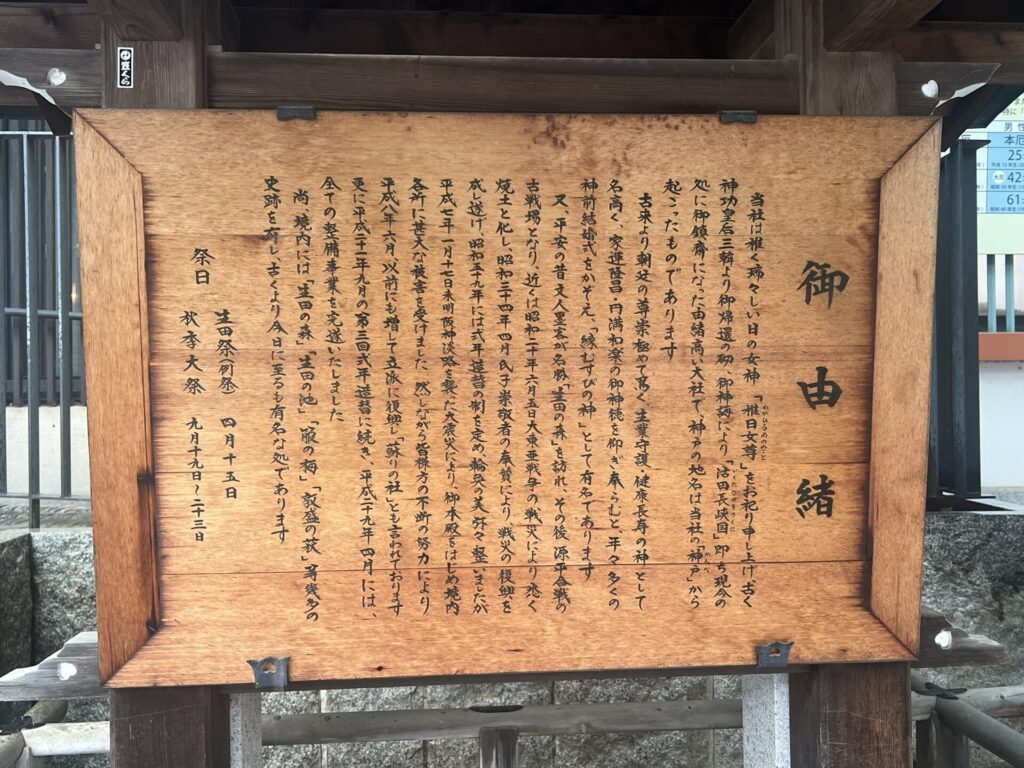 御由緒
当社は稚く瑞々しい日の女神「稚日女尊」をお祀り申し上げ古く
わかひるめのみこと
神功皇后三韓より御帰還の砌、御神誨により、「活田長峡国」即ち現今の
処に御鎮斎になった由緒高い大社で、神戸の地名は当社の「神戸」から
かんべ
起こったものであります
古来より朝廷の尊崇極めて篤く、生業守護、健康長寿の神として
名高く、家運隆昌・円満和楽の御神徳を仰ぎ奉らむと年々多くの
神前結婚式をかぞえ、「縁むすびの神」として有名であります
又、平安の昔、文人墨客が名勝「生田の森」を訪れ、その後源平合戦の
古戦場となり、近くは昭和二十年六月五日大東亜戦争の戦災により悉く
焼土と化し、昭和三十四年四月氏子崇敬者の奉賛により、戦災の復興を
成し遂げ、昭和五十九年には式年造替の制を定め、輪奐の美弥々整いましたが
平成七年一月十七日未明阪神淡路を襲った大震災により、御本殿をはじめ境内
各所に甚大な被害を受けました 然しながら皆様方の不断の努力により
平成八年六月、以前にも増して立派に復興し「蘇りの社」とも言われております
更に平成二十一年九月の第三回式年造替に続き、平成二十九年四月には、
全ての整備事業を完遂いたしました
尚、境内には「生田の森」「生田の池」「箙の梅」「敦盛の萩」等幾多の
史跡を有し、古くより今日に至るも有名な処であります
祭日 生田祭(例祭) 四月十五日
秋季大祭 九月十九日～二十三日
男性
本厄
25
42
61